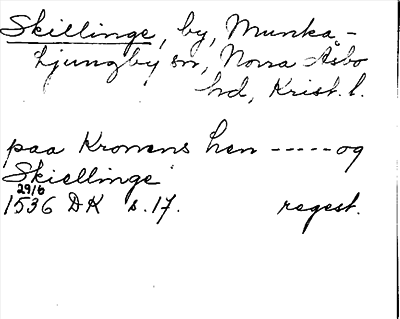 Skillinge, by, Munka-
Ljungby sn, Norra Åsbo
hd, Krist. l.
paa Kronens hen ----- og
Skiellinge
29/6
1536 DK s. 17. regest.